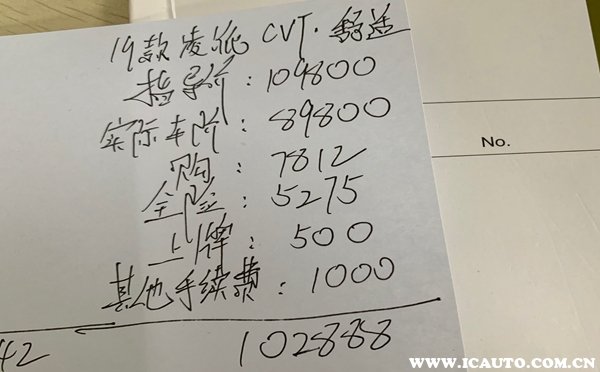 19款凌派 CVT·舒适
指导价：109800
实际车价：89800
购：7812
No.
全险：5275
上牌：500
其他手续费：1000
42
102888
WWW.ICAUTO.COM.CN